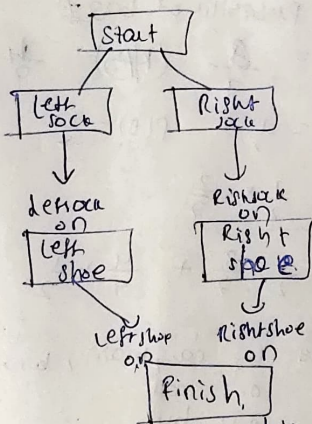 Start
Left
sock
Right
sock
Leftsock
on
Rightsock
on
Left
shoe
Right
shoe
Leftshoe
on
Rightshoe
on
Finish